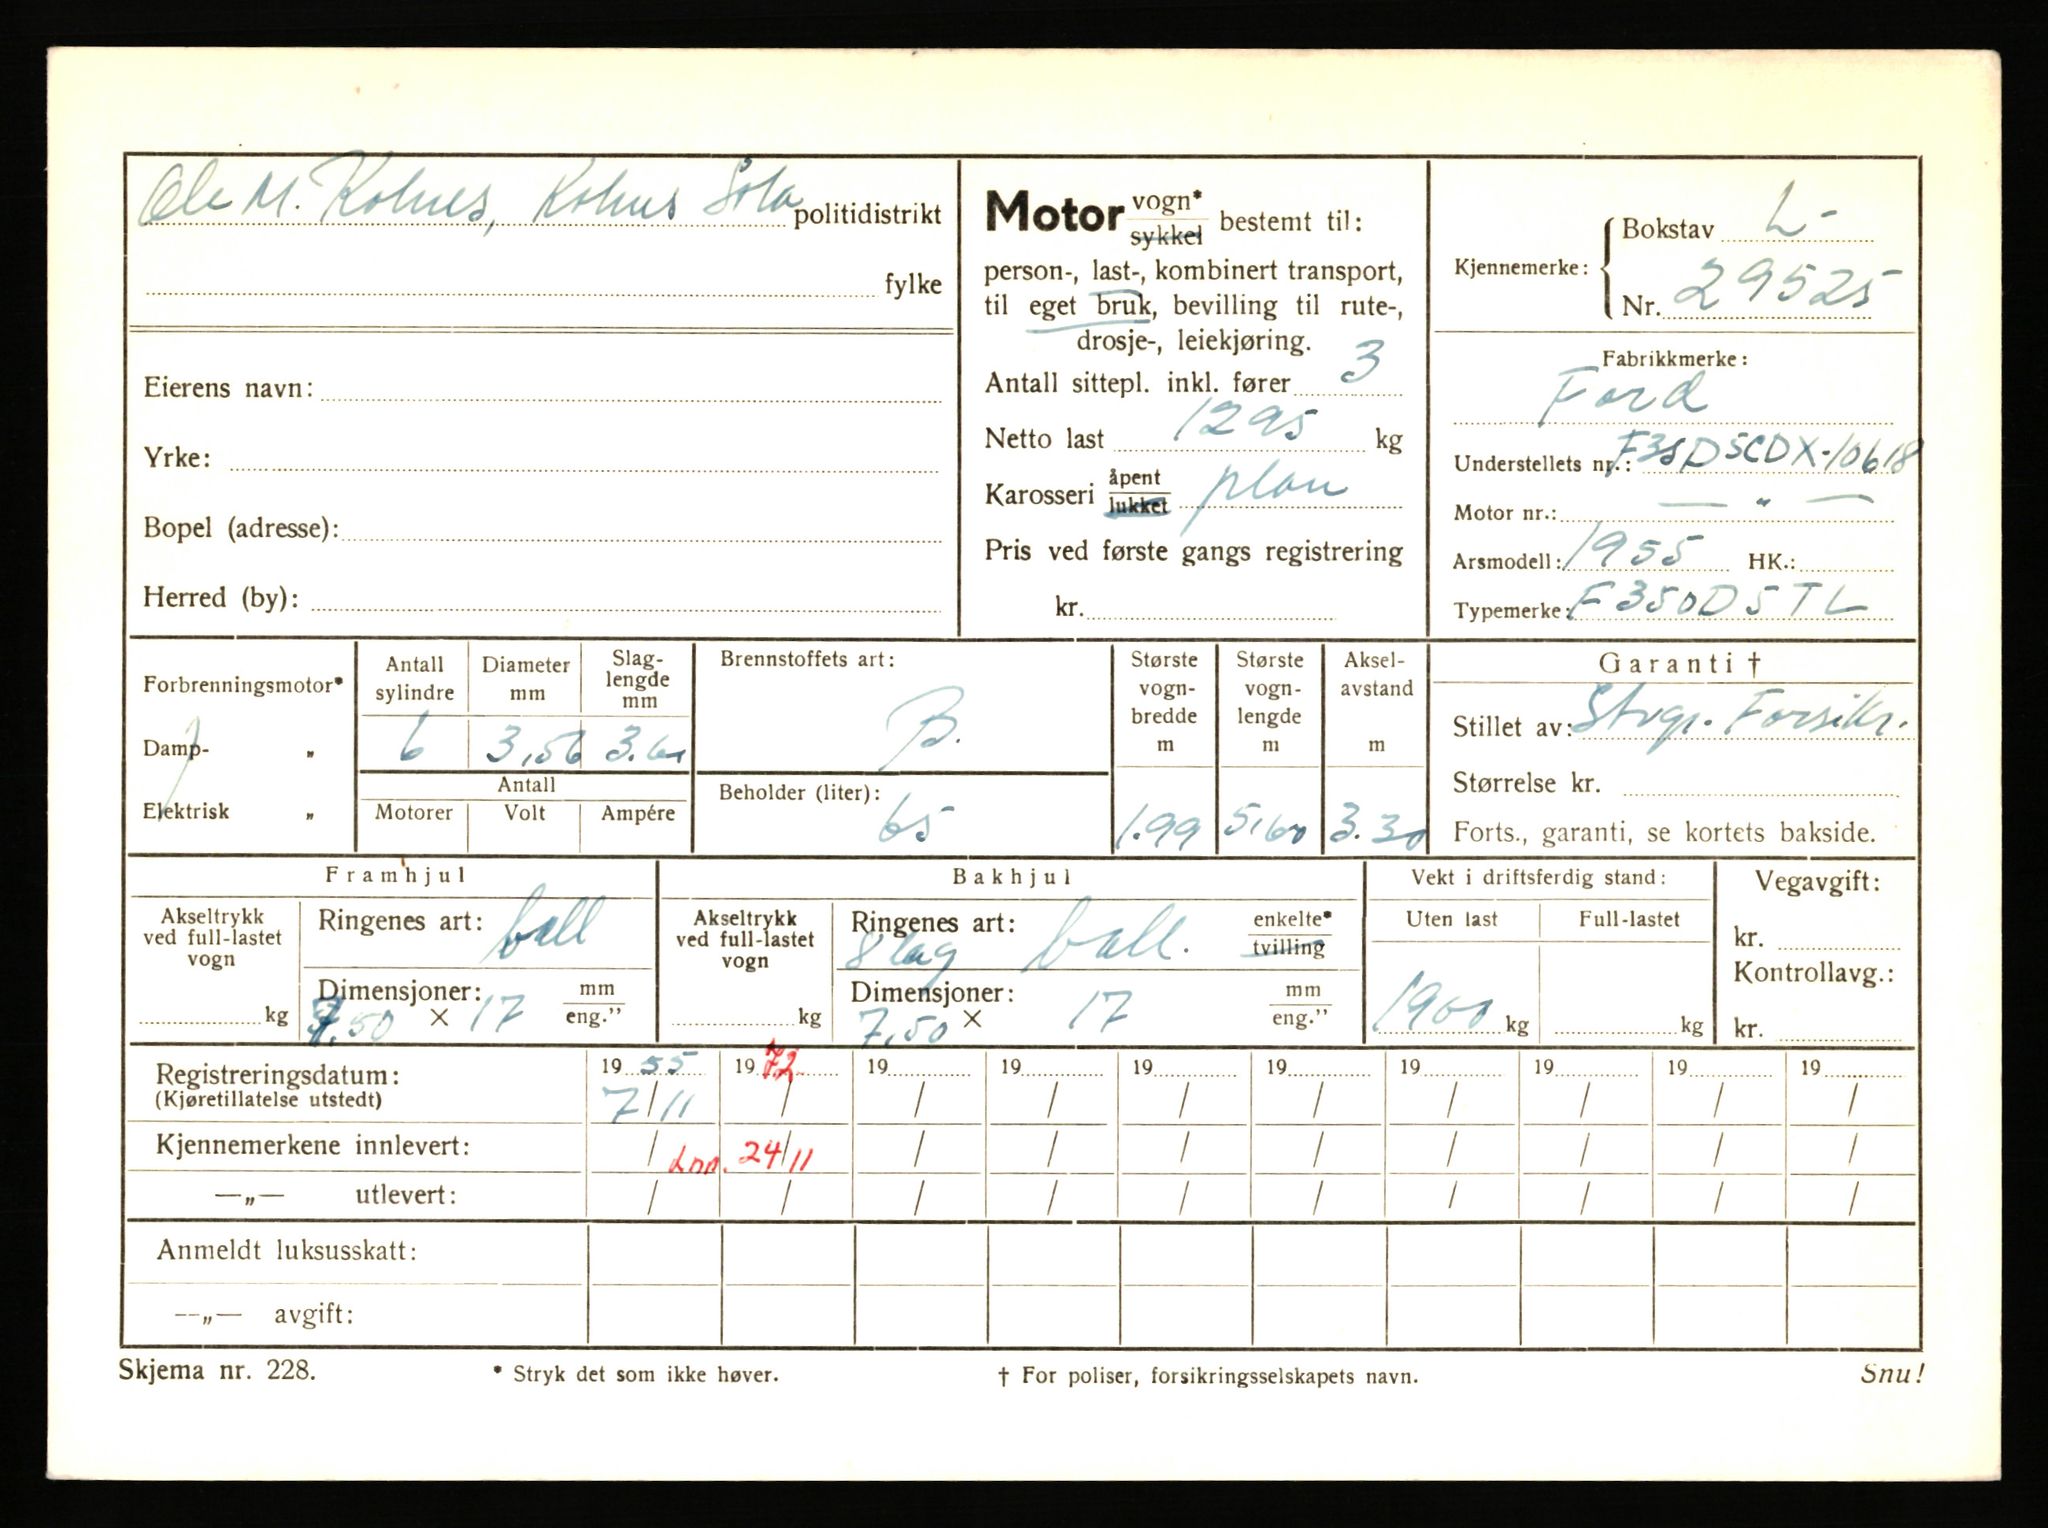 Ole M. Kolnes, Kolnes Sola politidistrikt
fylke
Eierens navn:
Yrke:
Bopel (adresse):
Herred (by):
Motor vogn* sykkel bestemt til:
person-, last-, kombinert transport,
til eget bruk, bevilling til rute-,
drosje-, leiekjøring.
Antall sittepl. inkl. fører 3
Netto last 1295 kg
Karosseri åpent lukket plan
Pris ved første gangs registrering
kr.
Kjennemerke: Bokstav L-
Nr. 29525
Fabrikkmerke:
Ford
Understellets nr.: F35D5CDX-10618
Motor nr.: — " —
Arsmodell: 1955 HK.:
Typemerke: F350D5TL
Forbrenningsmotor*
Damp- „
Elektrisk „
Antall sylindre 6
Diameter mm 3,56
Slag-lengde mm 3.60
Antall
Motorer Volt Ampére
Brennstoffets art:
B.
Beholder (liter):
65
Største vogn-bredde m 1.99
Største vogn-lengde m 5,60
Aksel-avstand m 3.30
Garanti †
Stillet av: Stvgr. Forsikr.
Størrelse kr.
Forts., garanti, se kortets bakside.
Framhjul
Akseltrykk ved full-lastet vogn
kg
Ringenes art: ball
Dimensjoner: 7,50 × 17 mm eng.”
Bakhjul
Akseltrykk ved full-lastet vogn
kg
Ringenes art: 8 lag ball. enkelte* tvilling
Dimensjoner: 7,50 × 17 mm eng.”
Vekt i driftsferdig stand:
Uten last Full-lastet
1900 kg kg
Vegavgift:
kr.
Kontrollavg.:
kr.
Registreringsdatum: 19 55 19 72 19 19 19 19 19 19 19 19
(Kjøretillatelse utstedt) 7/11 / / / / / / / / /
Kjennemerkene innlevert: / 24/11 / / / / / / / /
—„— utlevert: / / / / / / / / / /
Anmeldt luksusskatt:
—„— avgift:
Skjema nr. 228. * Stryk det som ikke høver. † For poliser, forsikringsselskapets navn. Snu!